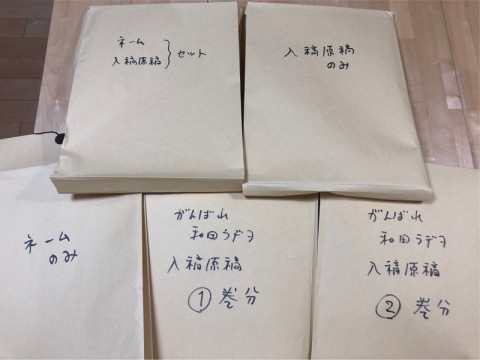 ネーム
入稿原稿
セット
入稿原稿
のみ
ネーム
のみ
がんばれ
和田ラヂヲ
入稿原稿
①巻分
がんばれ
和田ラヂヲ
入稿原稿
② 巻分